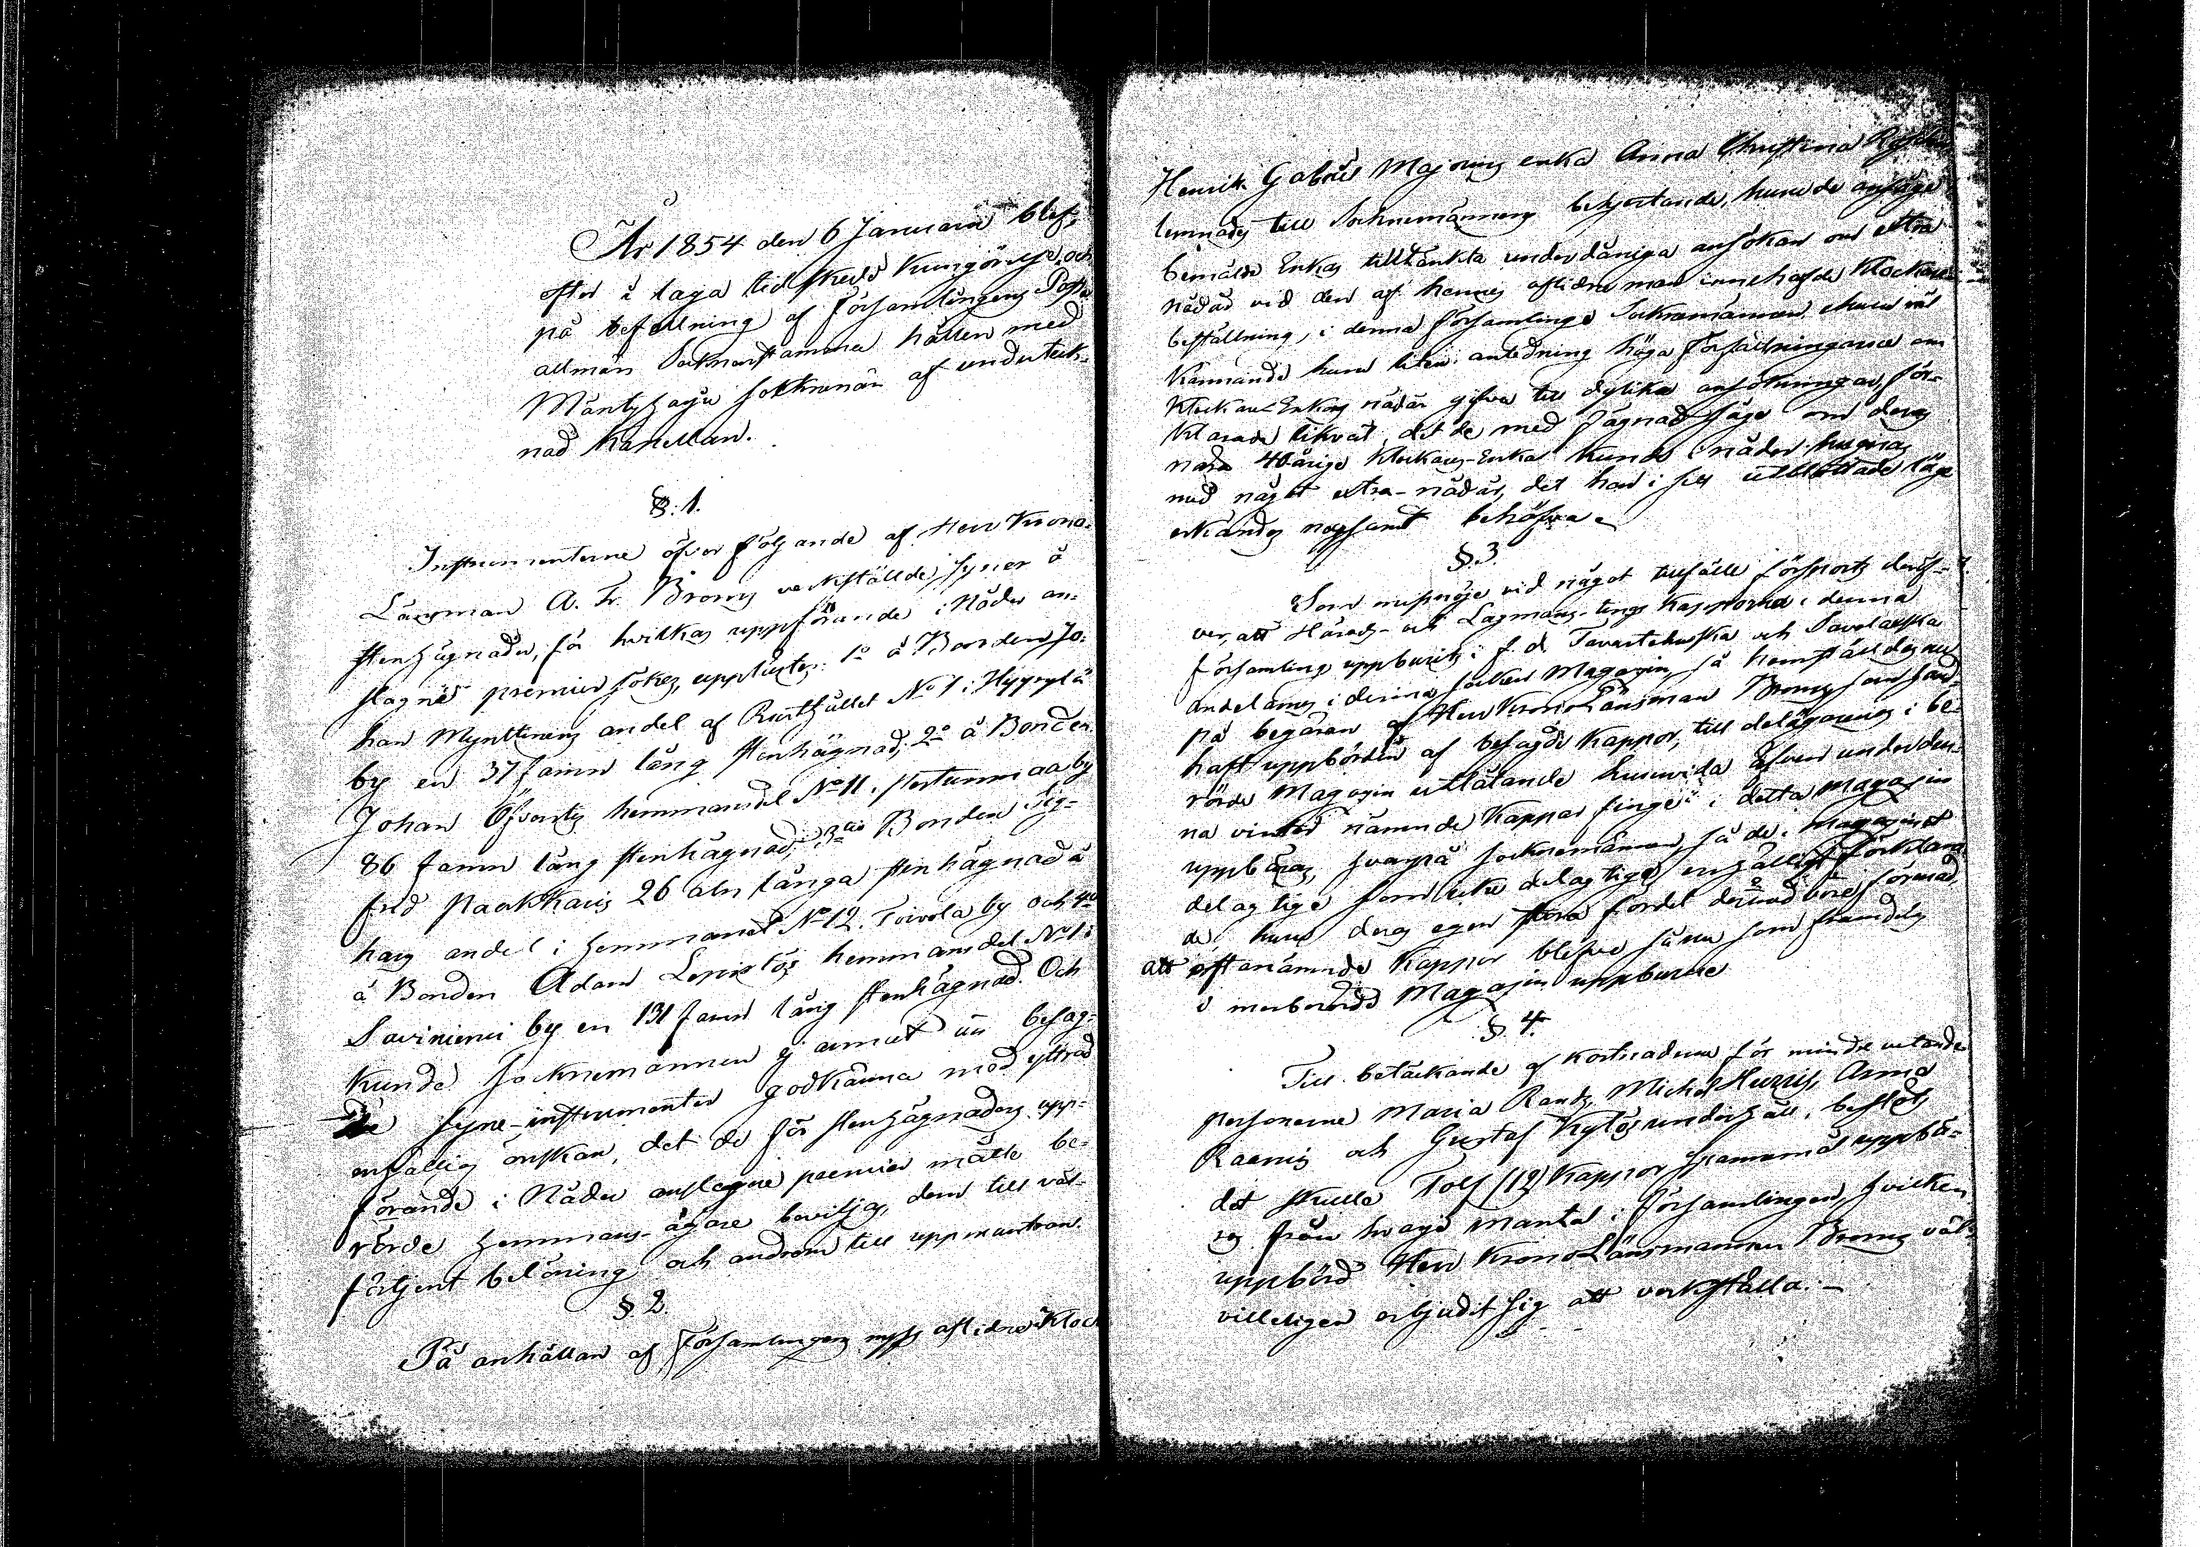 År 1854 den 6 Januarii blef,
efter i laga tid skedd kungörelse och
på befallning af Församlingens
allmän Sockenstämma hållen med
Mäntyharju sockenmän af underteck-
nad
§. 1.
Instrumenterne öfver följande af Herr Krono-
Länsman A. Fr. Broms verkställde syner å
stenhägnader, för hvilkas uppförande i Nåder an-
slagne premier sökes, upplästes: 1o å Bonden Jo-
han Mynttinens andel af Rusthållet No 1 i Hyyrylä
by en 37 famn lång stenhägnad; 2o å Bonden
Johan hemmansdel No 11 by
86 famn lång stenhägnad; 3tio Bonden Sig-
frid Paakkaris 26 aln långa stenhägnad å
hans andel i hemmanet No 12 Toivola by och 4to
å Bonden Adam Lepistös hemmansdel No 1 i
Saviniemi by en 131 famn lång stenhägnad. Och
kunde Sockenmännen ej annat än besag-
de syne-instrumenter godkänna med yttrad
enhällig önskan, det de för stenhägnaders upp-
förande i Nåder anslagne premier måtte be-
rörde hemmans-ägare beviljas, dem till väl-
förtjent belöning och androm till uppmuntran.
§ 2.
På anhållan af Församlingens nyss aflidne Klock
Henrik Gabriel Majorins enka Anna Christina
lemnades till Sockenmännens behjertande, huru de anse
bemälde Enkas tilltänkta underdåniga ansökan om extra
nådår vid den af hennes aflidne man innehafda Klockare-
beställning, i denna församling. Sockenmännen, ehuru väl
kännande huru liten anledning höga författningarne om
Klockare-Enkors nådår gifva till dylika ansökningar, för-
klarade likväl, det de med fägnad såge om deras
40årige Klockares-Enka kunde i nåder hugnas
med något extra-nådår, det hon i sitt utblottade läge
erkändes nogsamt behöfva.
§. 3.
Som missnöje vid något tillfälle försports deröf-
ver, att Härads- och Lagmans-tings kapporna i denna
församling uppburits i f. d. Tavastehuska och Savolaxska
andelarnes i denna socken Magazin, så hemställdes nu
på begäran af Herr KronoLänsman Broms som haf-
haft uppbörden af besagde kappor, till delägarenes i be-
rörde Magazin utlåtande huruvida äfven under den-
na vinter nämnde kappar finge i detta magazin
uppbäras, hvarpå sockenmännen, så de i magazinet
delaktige som icke delaktige, enhälligt förklara-
de huru deras egen fördel dermed vore förenad,
att oftanämnde kappor blefve sånu som framdeles
i merberörde Magazin uppburne
§ 4.
Till betäckande af kostnaderne för mindre vetande
personerne Maria Rants, Michel Hurris, Anna
Raanis och Gustaf Kylös underhåll, beslöts
det skulle Tolf (12) kappor spannmål uppbä-
ras från hvarje mantal i församlingen, hvilken
uppbörd Herr KronoLänsmannen Broms väl-
villeligen erbjudit sig att verkställa. –